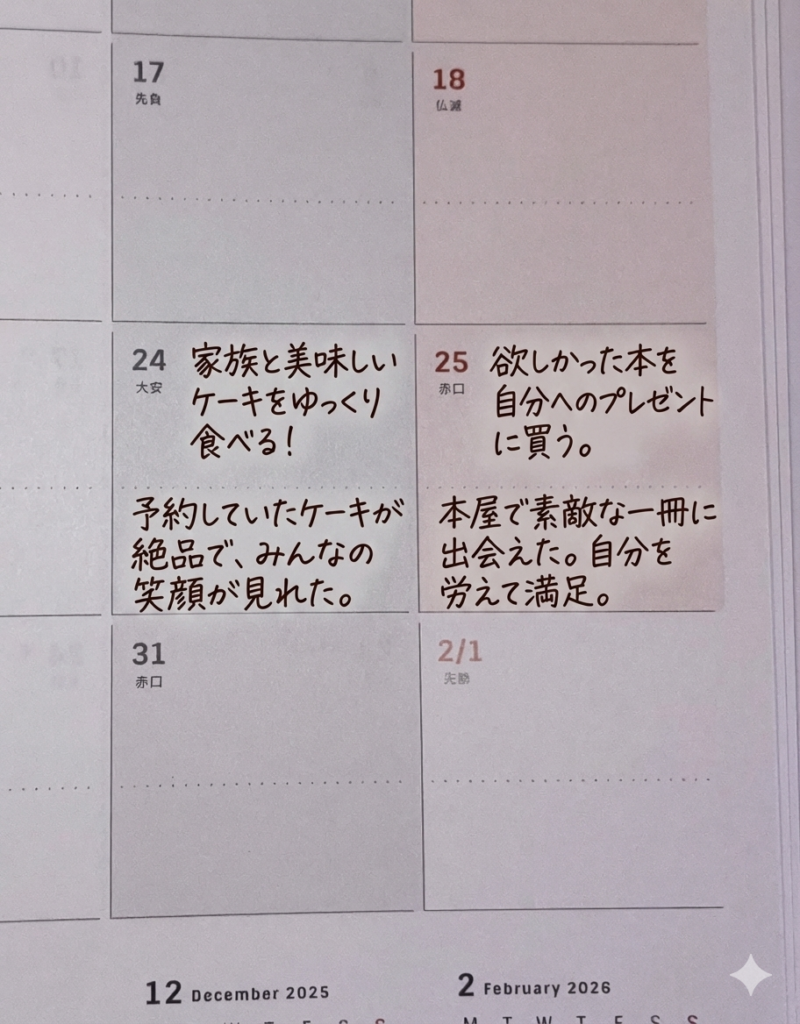 17
先負
18
仏滅
24
大安
家族と美味しい
ケーキをゆっくり
食べる！
予約していたケーキが
絶品で、みんなの
笑顔が見れた。
25
赤口
欲しかった本を
自分へのプレゼント
に買う。
本屋で素敵な一冊に
出会えた。自分を
労えて満足。
31
赤口
2/1
先勝
12 December 2025
2 February 2026
M T W T F S S